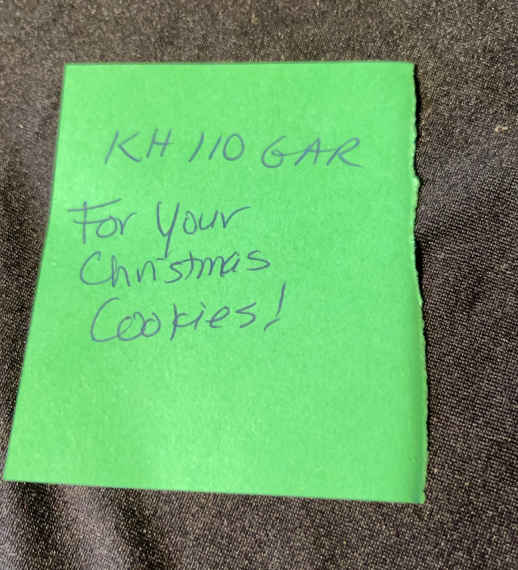 KH 110 GAR
For Your
Christmas
Cookies!